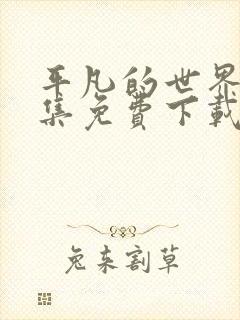 平凡的世界
集免费下载
兔来割草